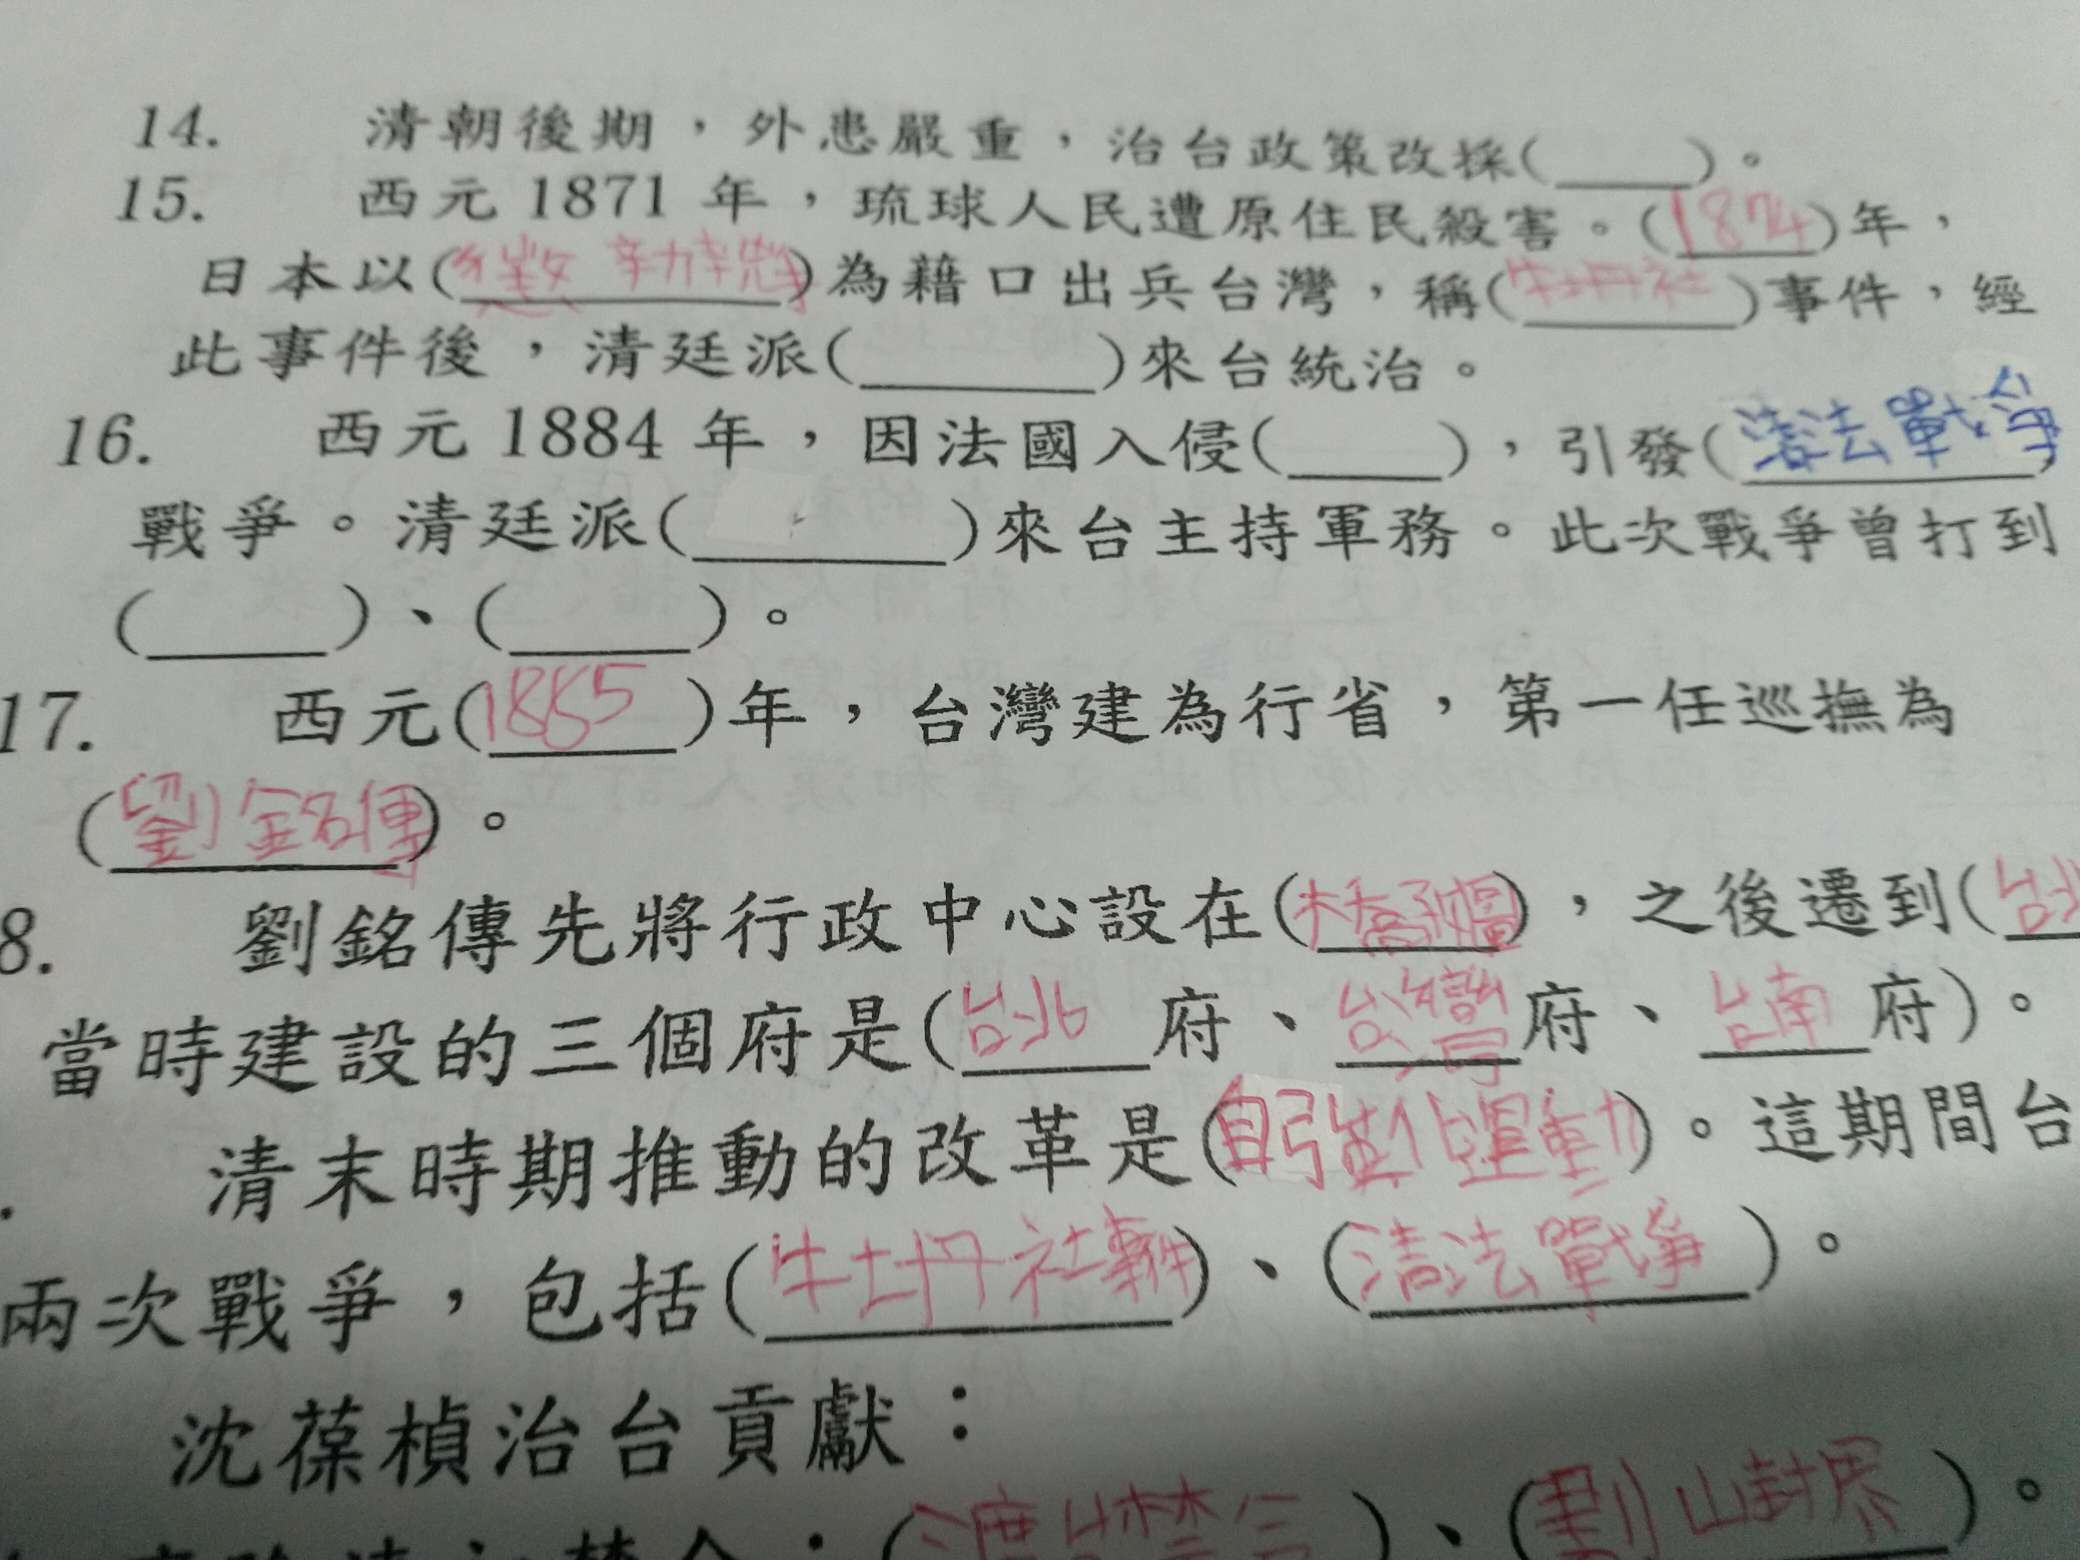 14. 清朝後期，外患嚴重，治台政策改採(____)。
15. 西元1871年，琉球人民遭原住民殺害。(1874)年，
日本以( )為藉口出兵台灣，稱(牡丹社)事件，經
此事件後，清廷派(______)來台統治。
16. 西元1884年，因法國入侵(____)，引發(清法戰爭)
戰爭。清廷派(______)來台主持軍務。此次戰爭曾打到
(____)、(____)。
17. 西元(1885)年，台灣建為行省，第一任巡撫為
(劉銘傳)。
8. 劉銘傳先將行政中心設在(橋孜圖)，之後遷到(台北
當時建設的三個府是(台北府、台灣府、台南府)。
. 清末時期推動的改革是(自強化運動)。這期間台
兩次戰爭，包括(牡丹社事件)、(清法戰爭)。
沈葆楨治台貢獻：
(渡台禁令)、(劃山封界)。